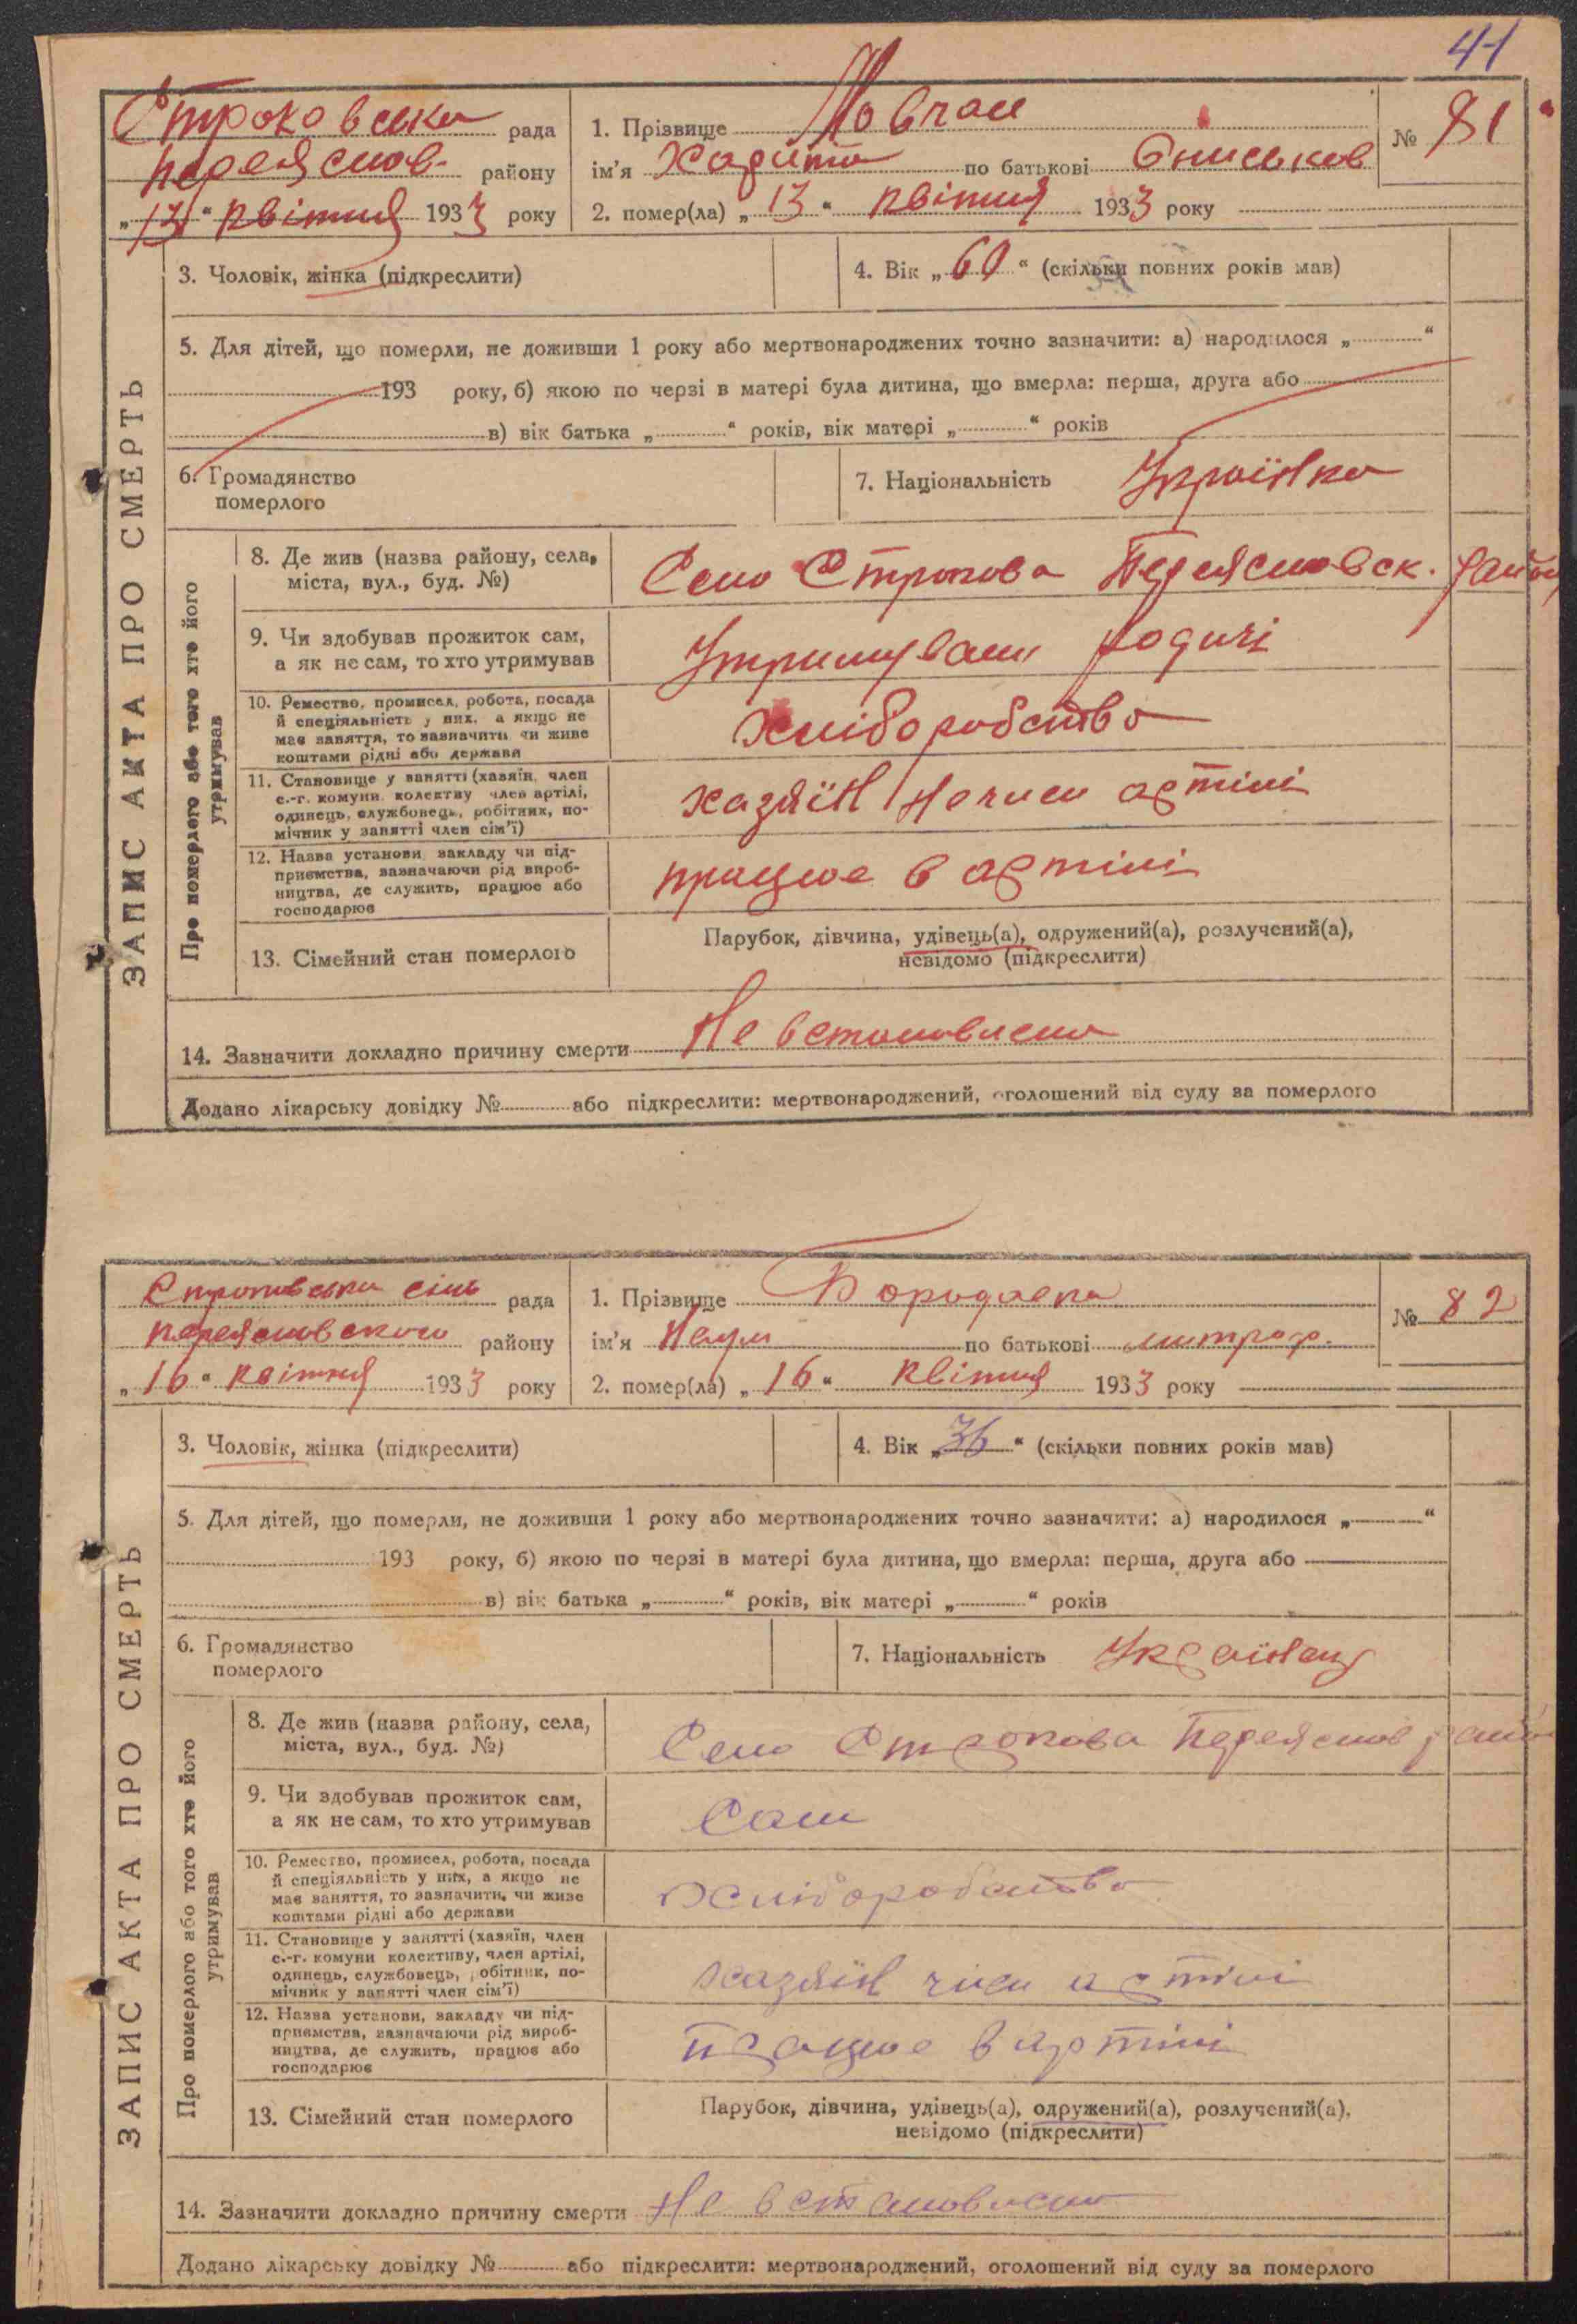 41
ЗАПИС АКТА ПРО СМЕРТЬ
Строковська рада
Переяслов. району
„13“ Квітня 1933 року
1. Прізвище Мовчан
ім'я по батькові
№ 81
2. помер(ла) „13“ Квітня 1933 року
3. Чоловік, жінка (підкреслити)
4. Вік „60“ (скільки повних років мав)
5. Для дітей, що померли, не доживши 1 року або мертвонароджених точно зазначити: а) народилося „ “
193 року, б) якою по черзі в матері була дитина, що вмерла: перша, друга або
в) вік батька „ “ років, вік матері „ “ років
6. Громадянство
померлого
7. Національність Українка
Про померлого або того хто його
утримував
8. Де жив (назва району, села,
міста, вул., буд. №)
Село Строкова Переясловск. район
9. Чи здобував прожиток сам,
а як не сам, то хто утримував
Утримували родичі
10. Ремество, промисел, робота, посада
й спеціяльність у них, а якщо не
має заняття, то зазначити чи живе
коштами рідні або держави
Хліборобство
11. Становище у занятті (хазяїн, член
с.-г. комуни, колективу член артілі,
одинець, службовець, робітник, по-
мічник у занятті член сім'ї)
хазяїн не член артілі
12. Назва установи, закладу чи під-
приємства, зазначаючи рід вироб-
ництва, де служить, працює або
господарює
працює в артілі
13. Сімейний стан померлого
Парубок, дівчина, удівець(а), одружений(а), розлучений(а),
невідомо (підкреслити)
14. Зазначити докладно причину смерти Не встановлено
Додано лікарську довідку № або підкреслити: мертвонароджений, оголошений від суду за померлого
ЗАПИС АКТА ПРО СМЕРТЬ
Строковська сіль рада
Переясловского району
„16“ Квітня 1933 року
1. Прізвище
ім'я Наум по батькові митроф.
№ 82
2. помер(ла) „16“ Квітня 1933 року
3. Чоловік, жінка (підкреслити)
4. Вік „36“ (скільки повних років мав)
5. Для дітей, що померли, не доживши 1 року або мертвонароджених точно зазначити: а) народилося „ “
193 року, б) якою по черзі в матері була дитина, що вмерла: перша, друга або
в) вік батька „ “ років, вік матері „ “ років
6. Громадянство
померлого
7. Національність Українец
Про померлого або того хто його
утримував
8. Де жив (назва району, села,
міста, вул., буд. №)
Село Строкова Переяслов район
9. Чи здобував прожиток сам,
а як не сам, то хто утримував
Сам
10. Ремество, промисел, робота, посада
й спеціяльність у них, а якщо не
має заняття, то зазначити, чи живе
коштами рідні або держави
Хліборобство
11. Становище у занятті (хазяїн, член
с.-г. комуни колективу, член артілі,
одинець, службовець, робітник, по-
мічник у занятті член сім'ї)
хазяїн член артілі
12. Назва установи, закладу чи під-
приємства, зазначаючи рід вироб-
ництва, де служить, працює або
господарює
працює в артілі
13. Сімейний стан померлого
Парубок, дівчина, удівець(а), одружений(а), розлучений(а),
невідомо (підкреслити)
14. Зазначити докладно причину смерти Не встановлено
Додано лікарську довідку № або підкреслити: мертвонароджений, оголошений від суду за померлого